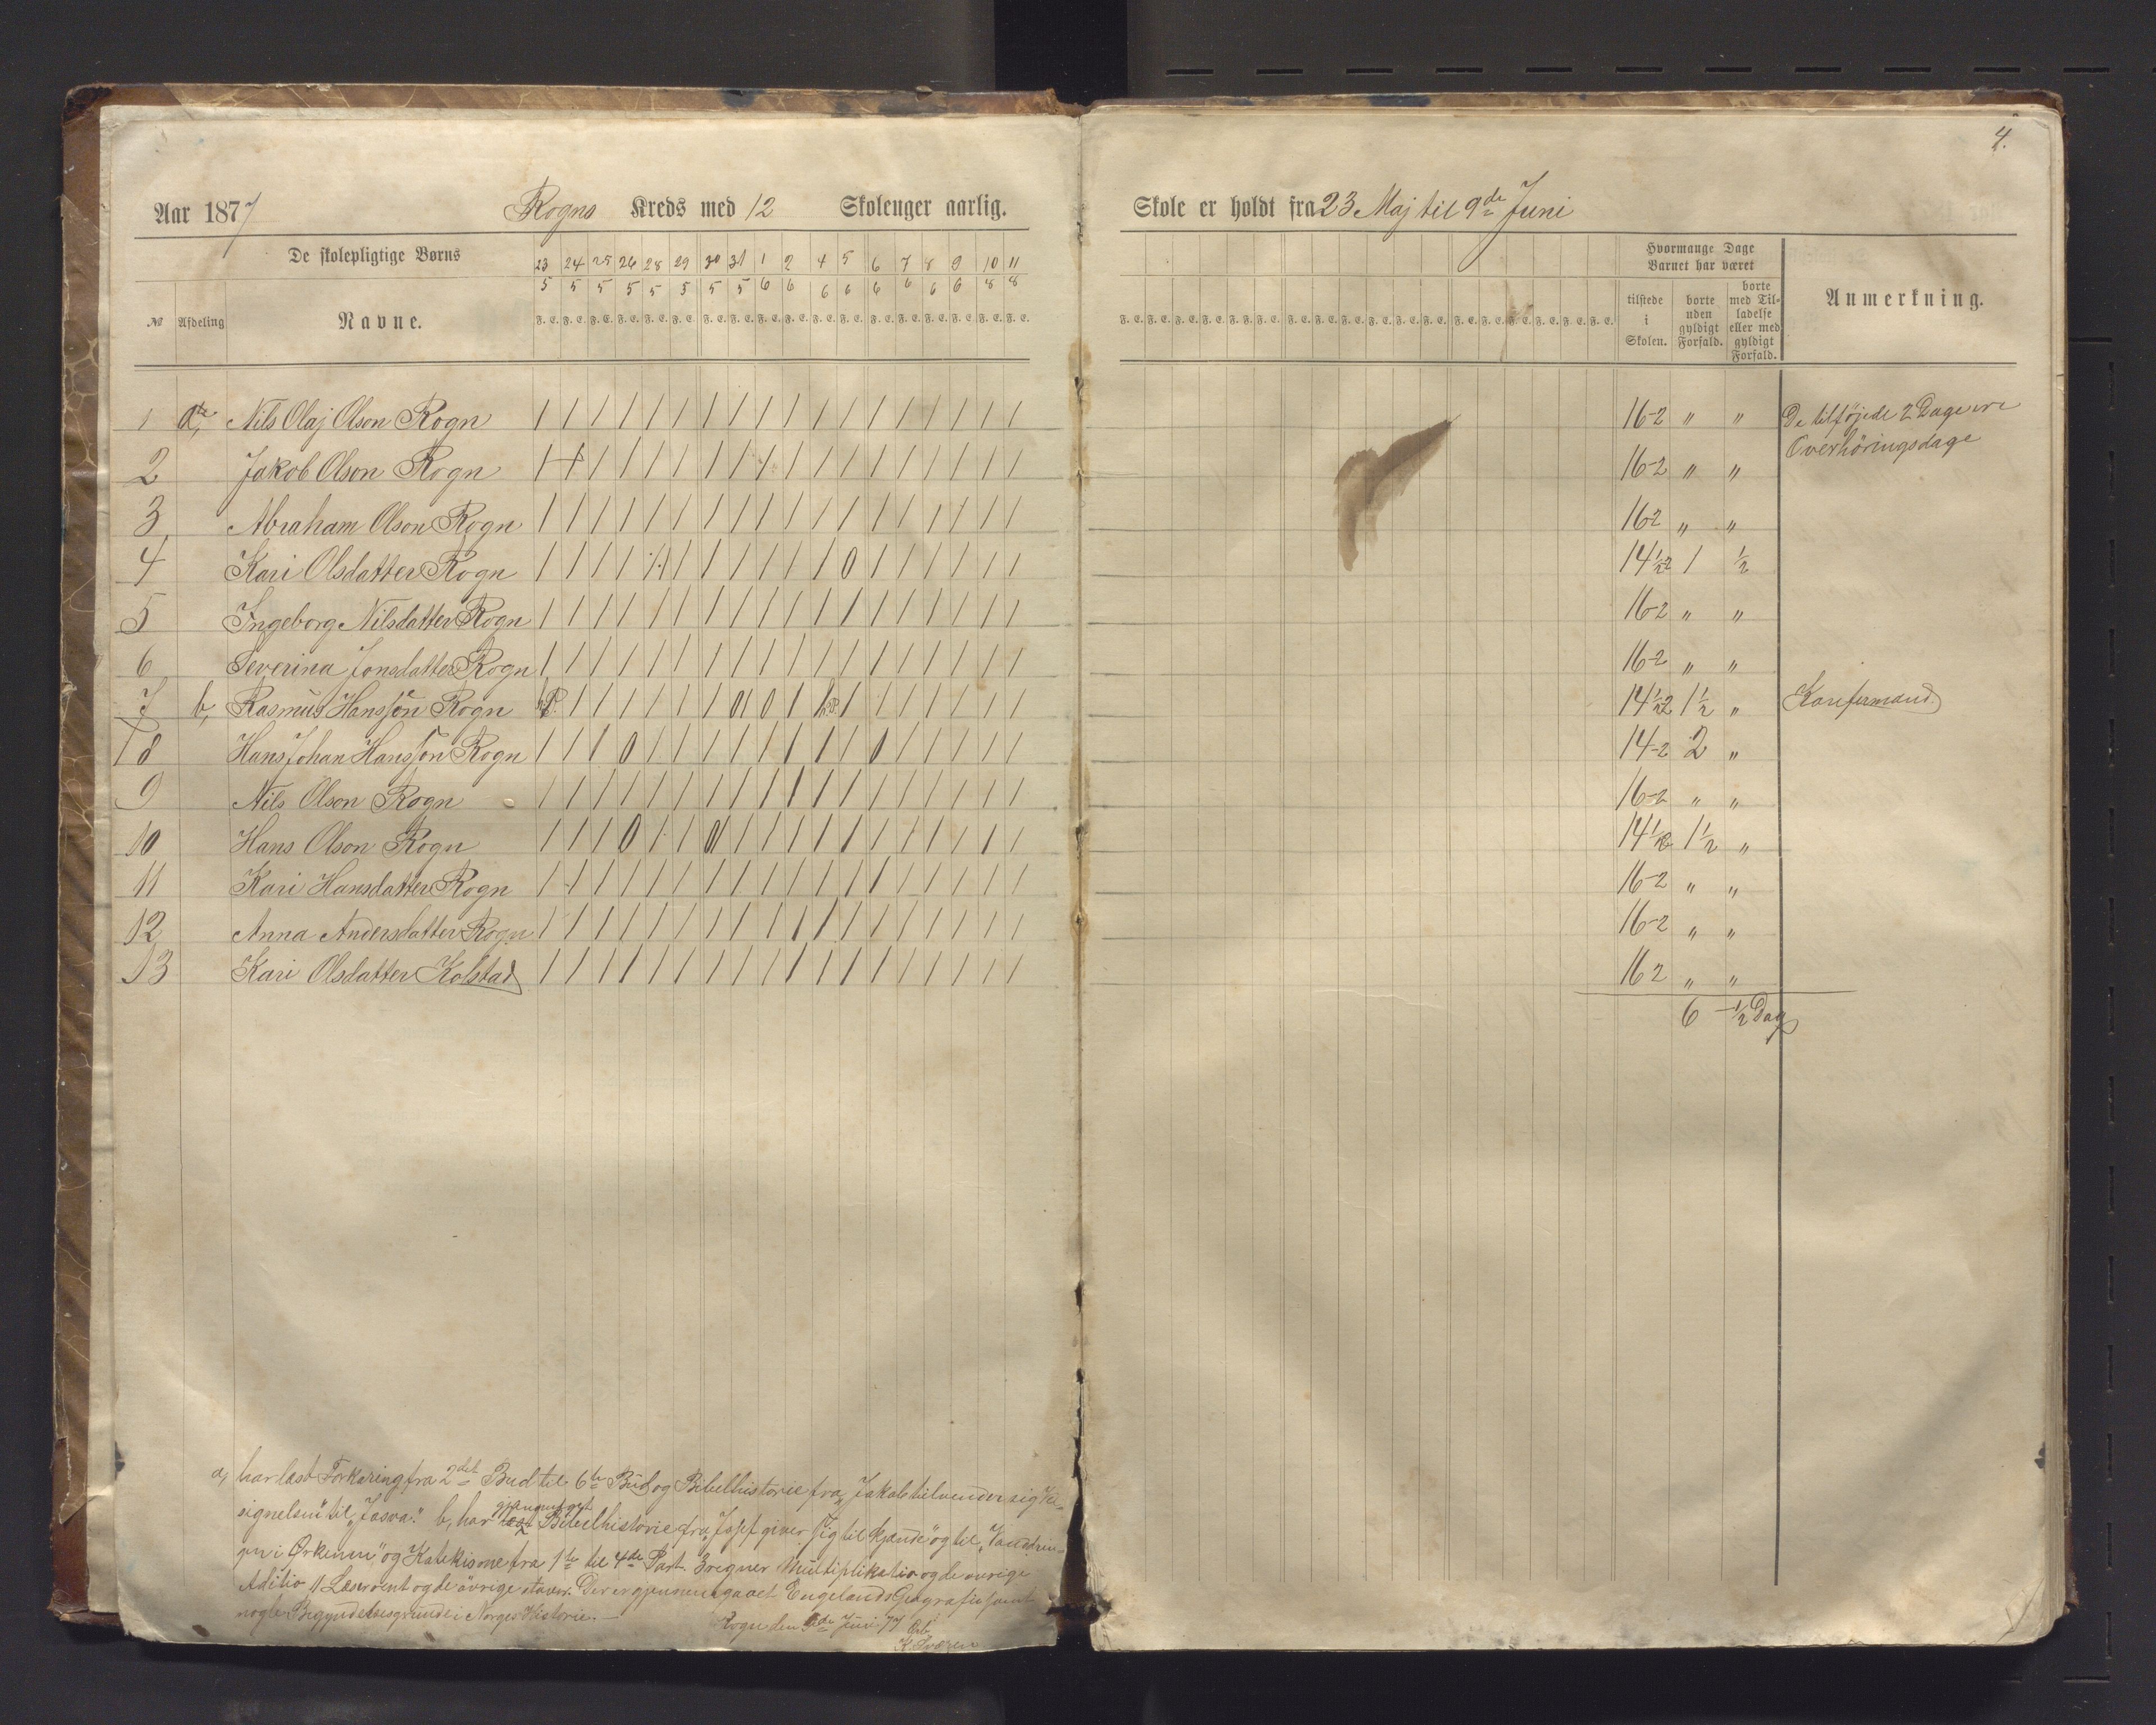 4.
Aar 1877 Rogns Kreds med 12 Skoleuger aarlig.
Skole er holdt fra 23 Maj til 9de Juni
De skolepligtige Børns
23 24 25 26 28 29 30 31 1 2 4 5 6 7 8 9 10 11
5 5 5 5 5 5 5 5 6 6 6 6 6 6 6 6 8 8
№ Afdeling Navne.
F. E. F. E. F. E. F. E. F. E. F. E. F. E. F. E. F. E. F. E. F. E. F. E. F. E. F. E. F. E. F. E. F. E. F. E.
Hvormange Dage
Barnet har været
tilstede i Skolen.
borte uden gyldigt Forfald.
borte med Tilladelse eller med gyldigt Forfald.
Anmerkning.
1 a, Nils Olaj Olson Rogn | | | | | | | | | | | | | | | | | | 16-2 " " De tilføjede 2 Dage ere
Overhöringsdage
2 Jakob Olson Rogn 16-2 " "
3 Abraham Olson Rogn 16-2 " "
4 Kari Olsdatter Rogn 14½-2 1 ½
5 Ingeborg Nilsdatter Rogn 16-2 " "
6 Severina Jonsdatter Rogn 16-2 " "
7 b, Rasmus Hansson Rogn 14½-2 1½ " Konfirmand.
8 Hans Johan Hansson Rogn 14-2 2 "
9 Nils Olson Rogn 16-2 " "
10 Hans Olson Rogn 14½-2 1½ "
11 Kari Hansdatter Rogn 16-2 " "
12 Anna Andersdatter Rogn 16-2 " "
13 Kari Olsdatter Kolstad 16 2 " "
6 - ½ Dag
a, har læst Forkaring fra 2det Bud til 6te Bud og Bibelhistorie fra "Jakob tilvender sig Vel-
signelsen" til "Josva." b, har gjennemgaat Bibelhistorie fra "Josef giver sig til kjende" og til "Vandrin-
gen i Ørkenen," og Katekisme fra 1ste til 4de Part. 3 regner Multiplikation og de øvrige
Aditio og de övrige staver. Der er gjennemgaaet Engelands Geografi samt
nogle Begyndelsesgrunde i Norges Historie. —
Rogn den 9de Juni 77